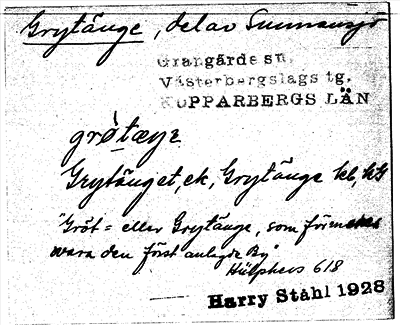 Grytänge, del av Sunnansjö
Grangärde sn.
Västerbergslags tg.
KOPPARBERGS LÄN
grö̀tæŋe
Grytänget, ek, Grytänge hb, kG
"Gröt= eller Grytänge, som förmenes
wara den först anlagde By"
Hülphers 618
Harry Ståhl 1928